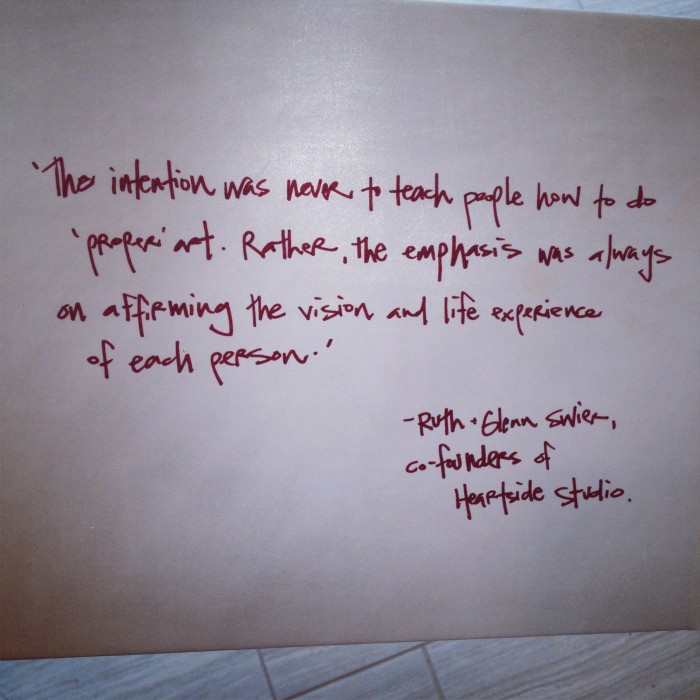 'The intention was never to teach people how to do
'proper' art. Rather, the emphasis was always
on affirming the vision and life experience
of each person.'
-Ruth + Glenn Swier,
co-founders of
Heartside Studio.